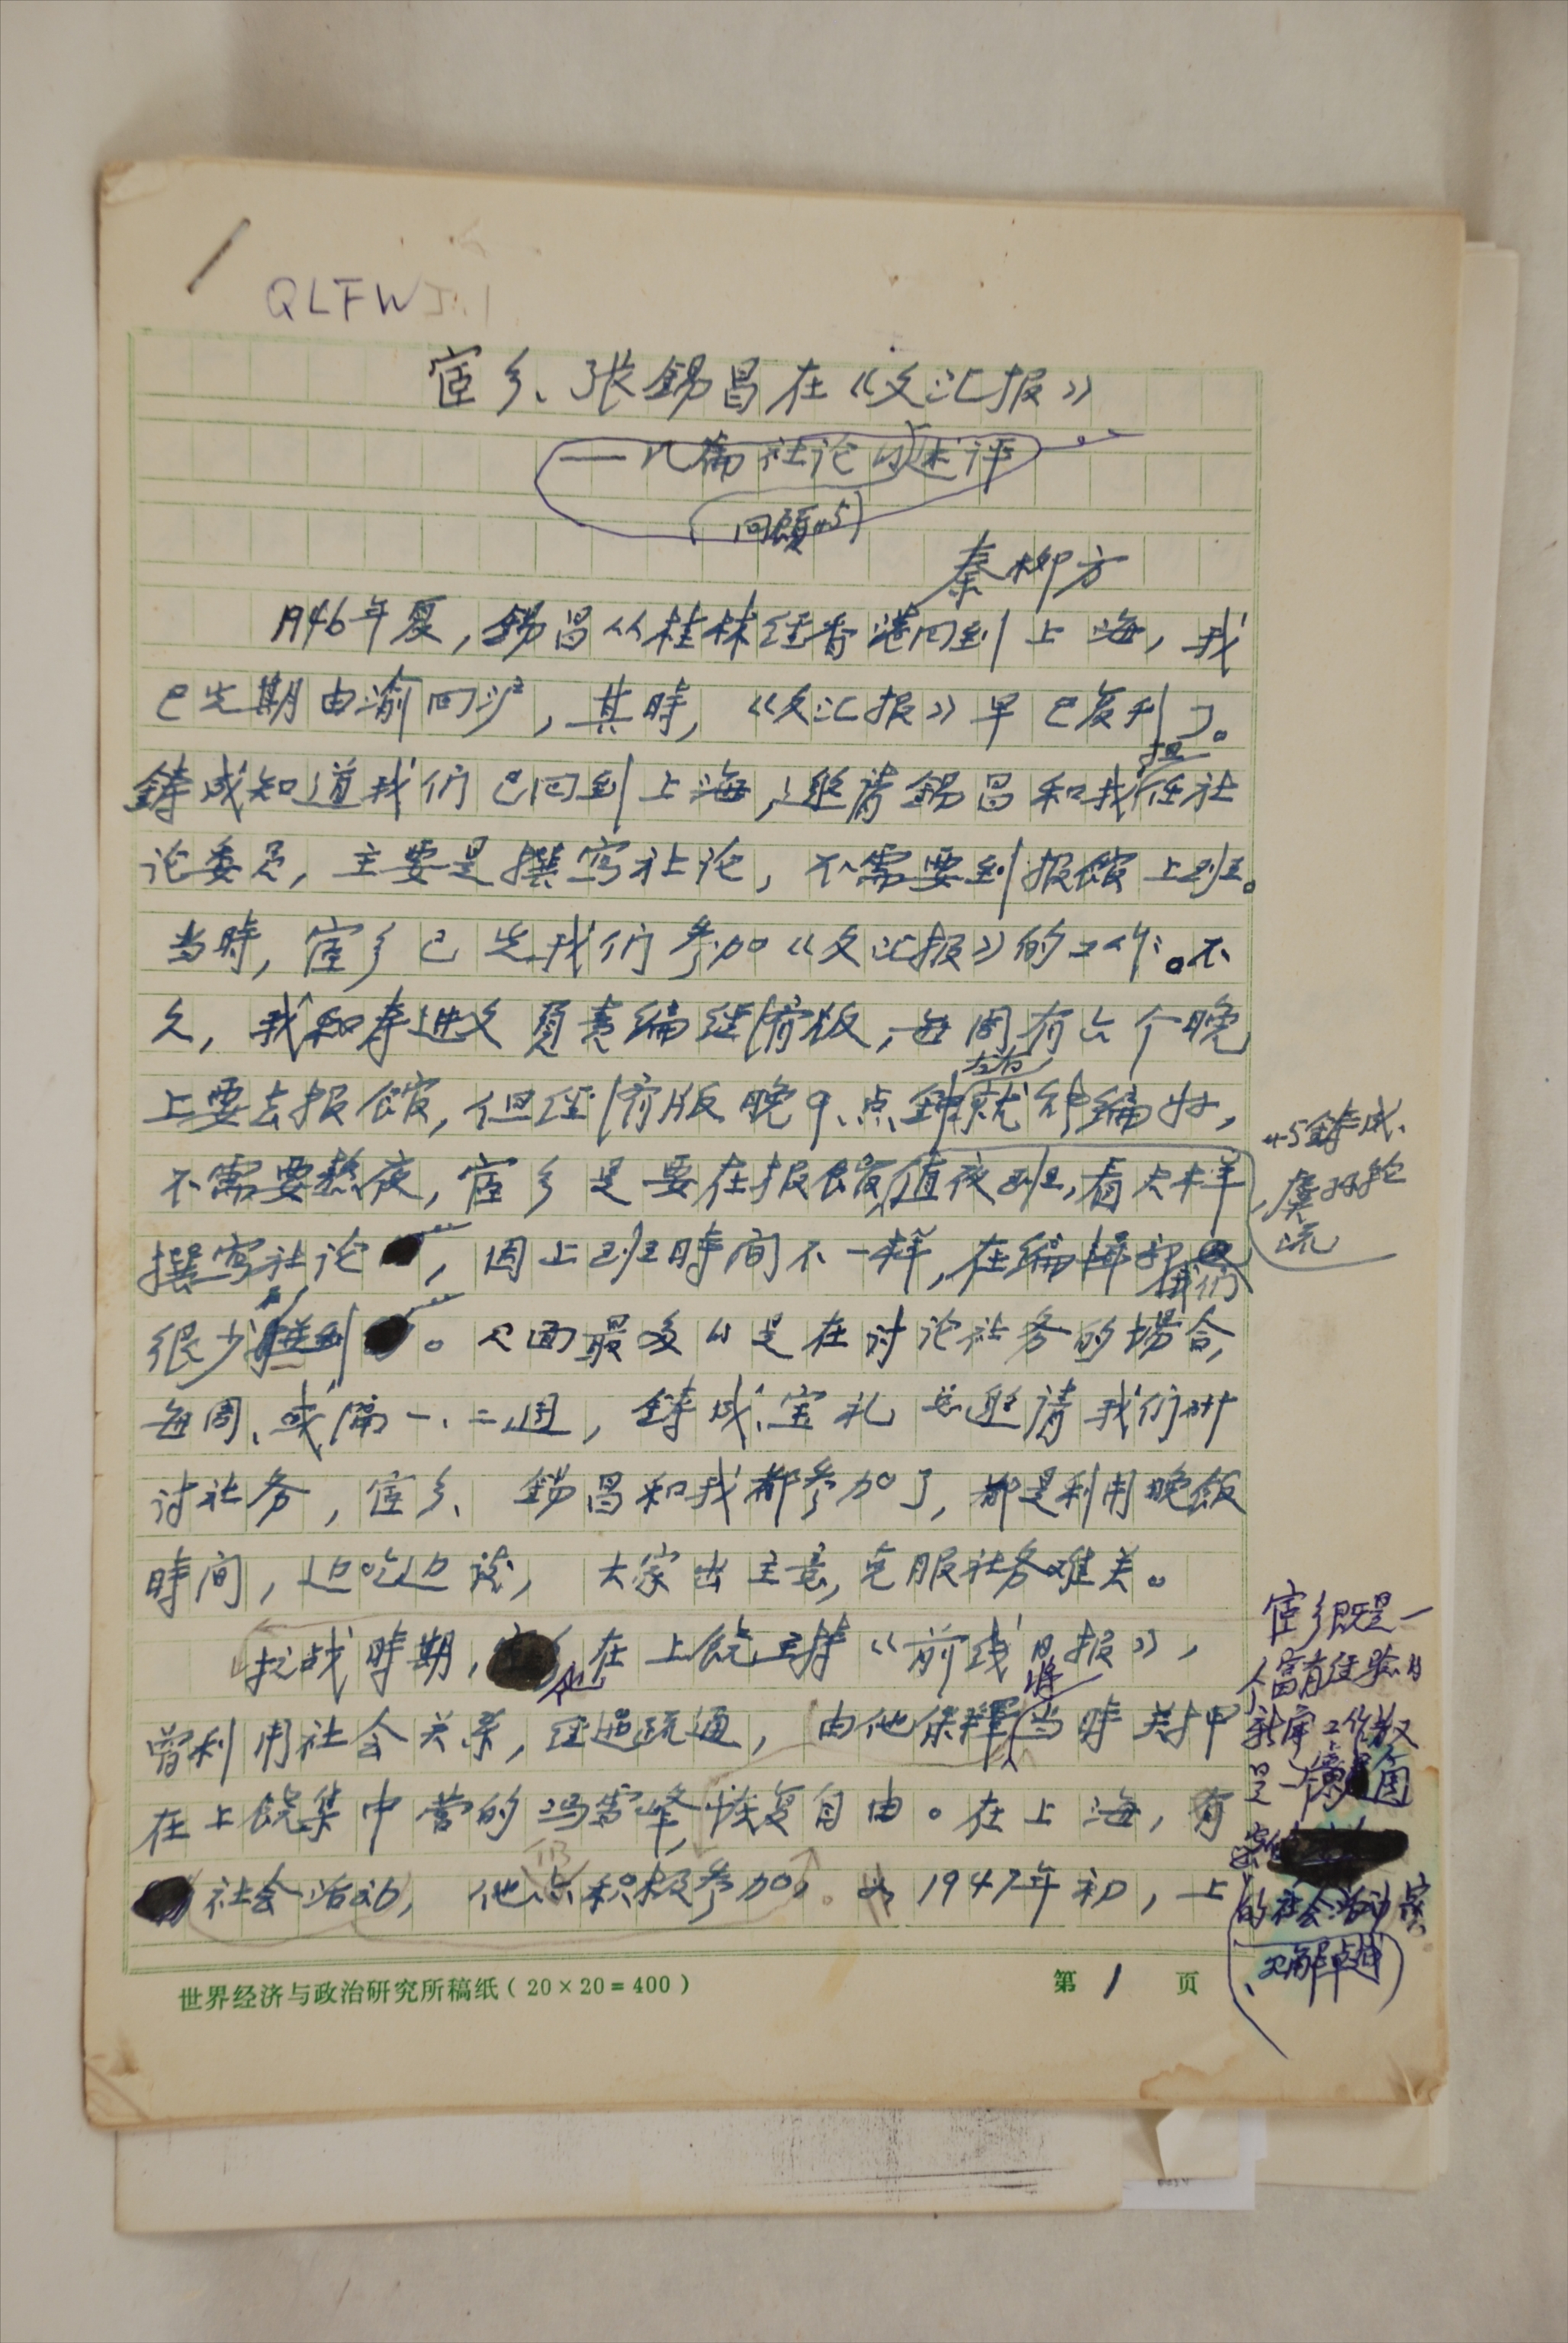 QLFWJ.1
宦乡、张錫昌在《文汇报》
——八篇社论的述评
回顧
秦柳方
1946年夏，錫昌从桂林经香港回到上海，我
已先期由渝回沪，其時，《文汇报》早已复刊了。
鋳成知道我们已回到上海，邀请錫昌和我担任社
论委员，主要是撰写社论，不需要到报館上班。
当時，宦乡已先我们参加《文汇报》的工作。不
久，我和寿进文負责编经济版，每周有六个晚
上要去报館，但经济版晚9点鈡就编好，
不需要熬夜，宦乡是要在报館值夜班，看大样
与鋳成、虞孙轮流
撰写社论，因上班時间不一样，在编辑部
我们
很少碰到。见面最多的是在讨论社务的場合，
每周、或隔一、二週，鋳成、宝礼总邀请我们研
讨社务，宦乡、錫昌和我都参加了，都是利用晚飯
時间，边吃边谈，大家出主意，克服社务难关。
抗战時期，他在上饶主持《前线日报》，
曾利用社会关系，经过疏通，由他保釋将当時关押
在上饶集中营的冯雪峰，恢复自由。在上海，有
社会活动，他仍积极参加。如1947年初，上
宦乡既是一
个富有经验的
新闻工作者又
是一
的社会活动家。
世界经济与政治研究所稿纸（20×20=400）
第 1 页